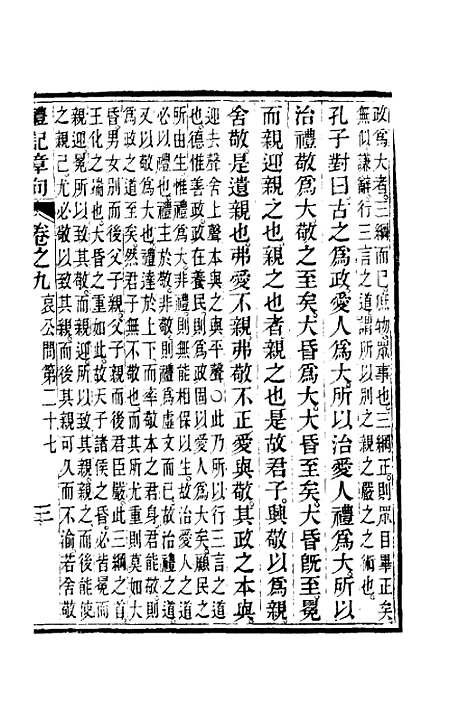 政爲大者三綱而已庶物眾事也三綱正則眾目畢正矣
無似謙辭行三言之道謂所以別之親之嚴之之術也
孔子對曰古之爲政愛人爲大所以治愛人禮爲大所以
治禮敬爲大敬之至矣大昏爲大大昏至矣大昏既至冕
而親迎親之也親之也者親之也是故君子興敬以爲親
舍敬是遺親也弗愛不親弗敬不正愛與敬其政之本與
迎去聲舍上聲本與之與平聲○此乃所以行三言之道
也德惟善政政在養民則爲政固以愛人爲大矣顧民之
所由生惟禮爲大非禮則無能相保以生故治愛人之道
必以禮也禮主於敬非敬則禮爲虛文而已故治禮之道
又以敬爲大也禮達於上下而率敬本之君身君能敬則
爲政之道至矣然君子無不敬也而其所尤重則莫如大
昏男女別而後父子親父子親而後君臣嚴此三綱之首
王化之端也大昏之重如此故天子諸侯之昏必皆冕而
親迎冕所以致其敬而親迎所以致其親親之而後能使
之親己尤必敬以致其親而後其親可久而不渝若舍敬
禮記章句 卷之九 哀公問第二十七 三